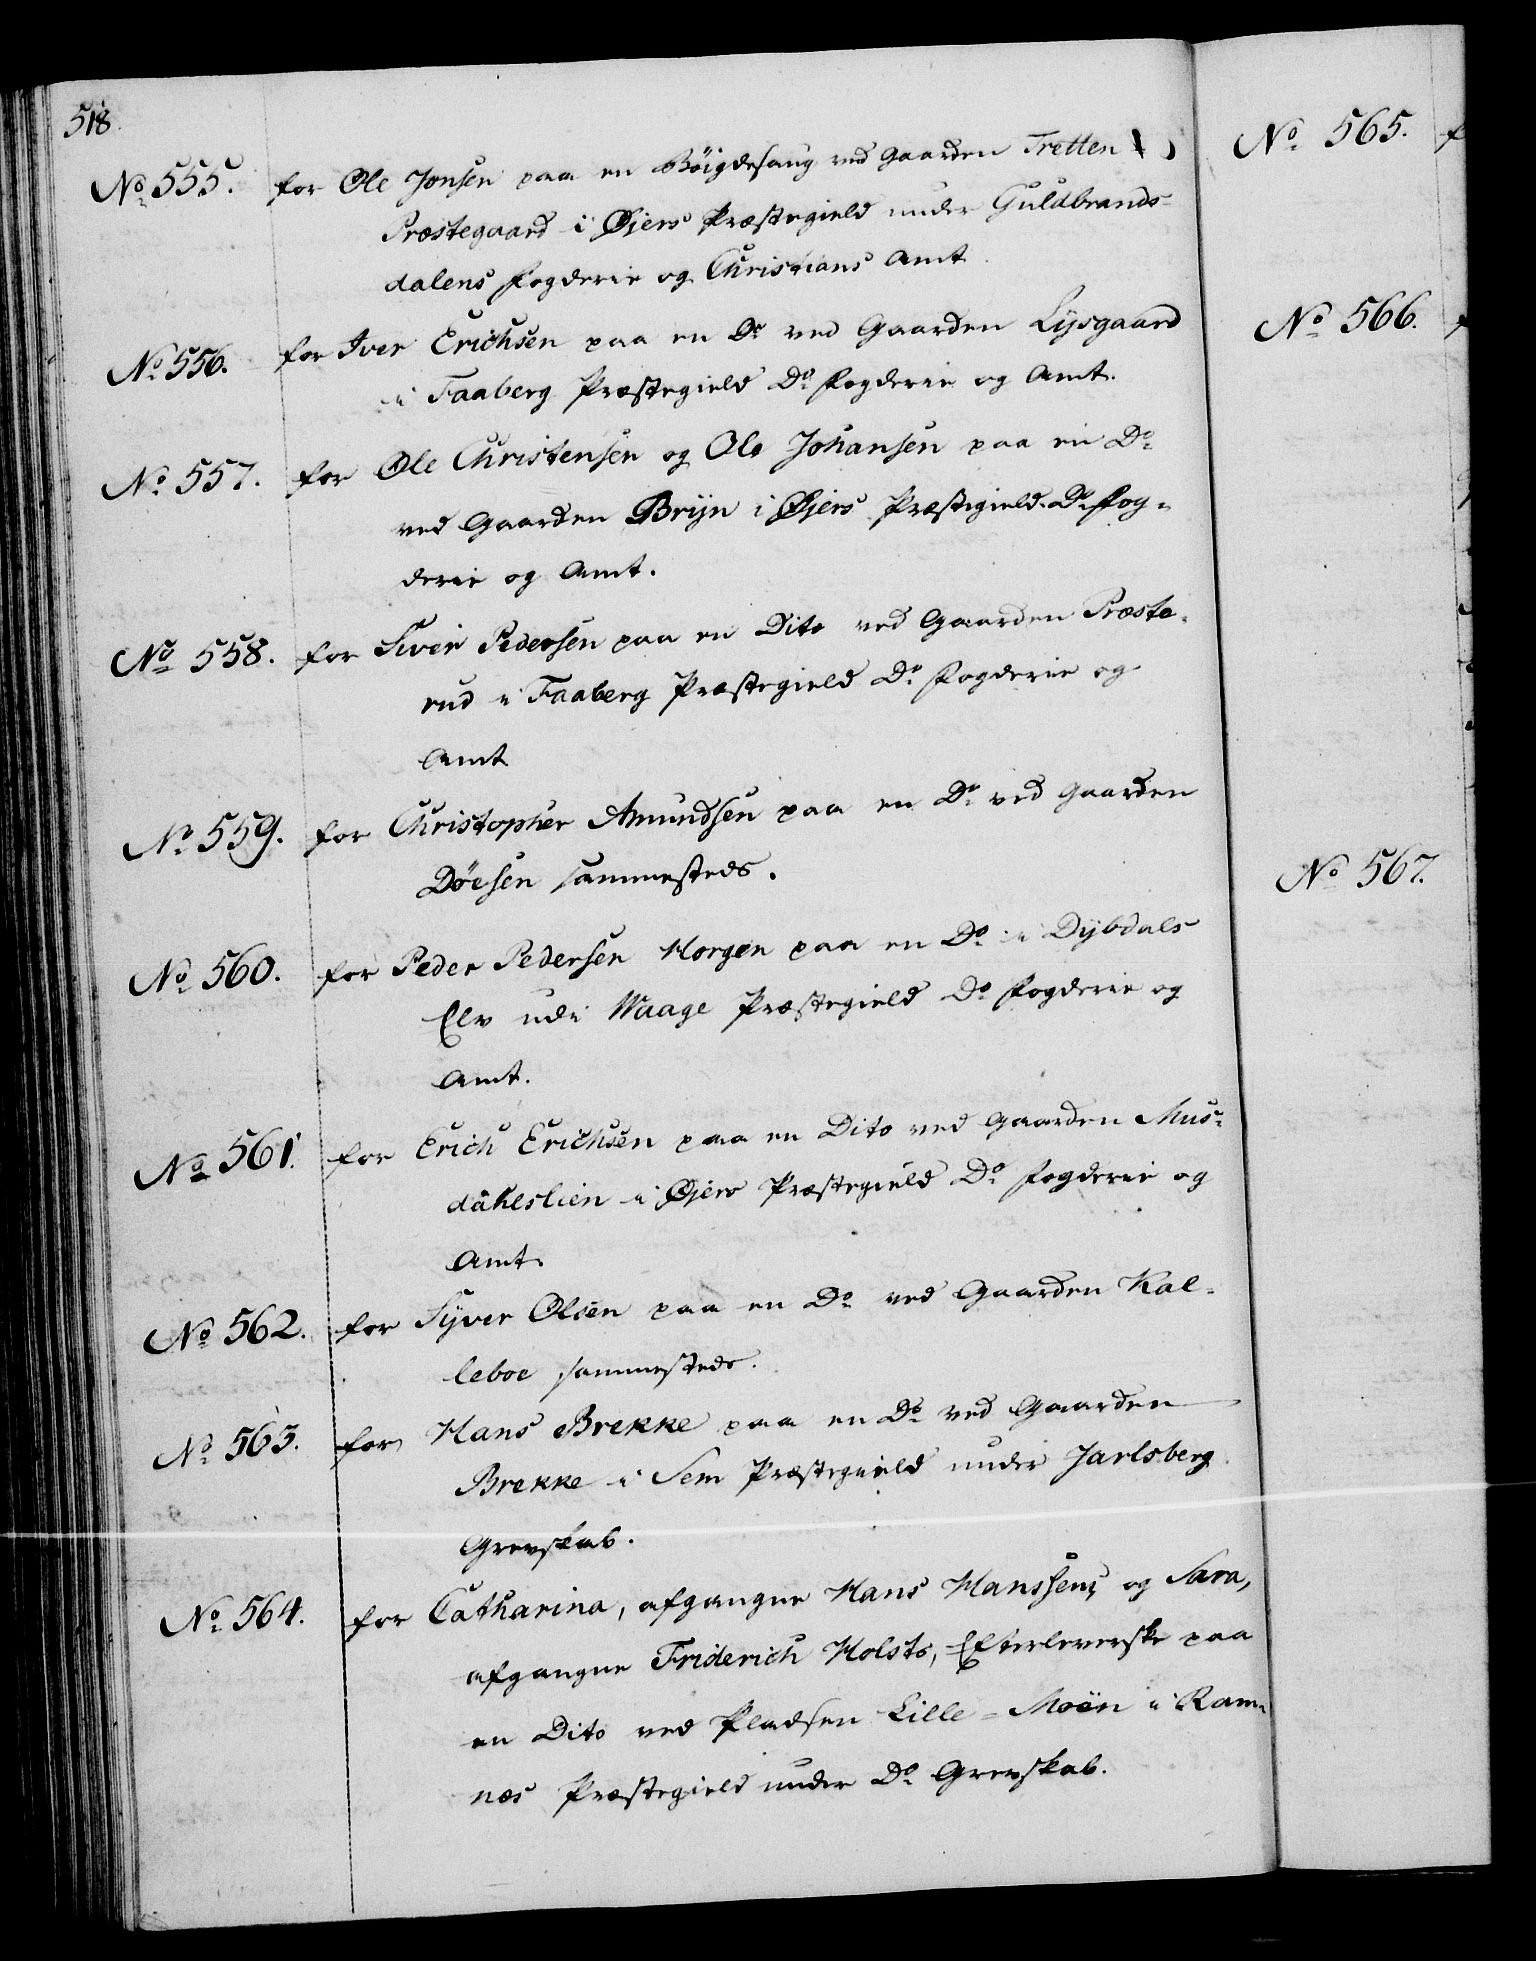 518.
No 555. for Ole Jonsen paa en Böigdesaug ved Gaarden Tretten
Præstegaard i Øjers Præstegield under Guldbrands-
dalens Fogderie og Christians Amt
No 556. for Iver Erichsen paa en Do ved Gaarden Lysgaard
i Faaberg Præstegield Do Fogderie og Amt.
No 557. for Ole Christensen og Ole Johansen paa en Do
ved Gaarden Bryn i Øjers Præstegield Do Fog-
derie og Amt.
No 558. for Siver Pedersen paa en Dito ved Gaarden Præste-
rud i Faaberg Præstegield Do Fogderie og
Amt
No 559. for Christopher Amundsen paa en Do ved Gaarden
Döesen sammesteds.
No 560. for Peder Pedersen Horgen paa en Do i Dybdals
Elv udi Waage Præstegield Do Fogderie og
Amt.
No 561. for Erich Erichsen paa en Dito ved Gaarden Mus-
dahlslien i Øjers Præstegield Do Fogderie og
Amt.
No 562. for Syver Olsen paa en Do ved Gaarden Kal-
leboe sammesteds.
No 563. for Hans Brekke paa en Do ved Gaarden
Brekke i Sem Præstegield under Jarlsberg
Grevskab.
No 564. for Catharina, afgangne Hans Hanssens og Sara,
afgangne Friderich Holsts, Efterleverske paa
en Dito ved Pladsen Lille-Moën i Ram-
næs Præstegield under Do Grevskab.
No 565. f
No 566. f
No 567.